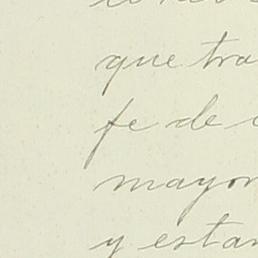 que tra
fe de
mayor
y estan